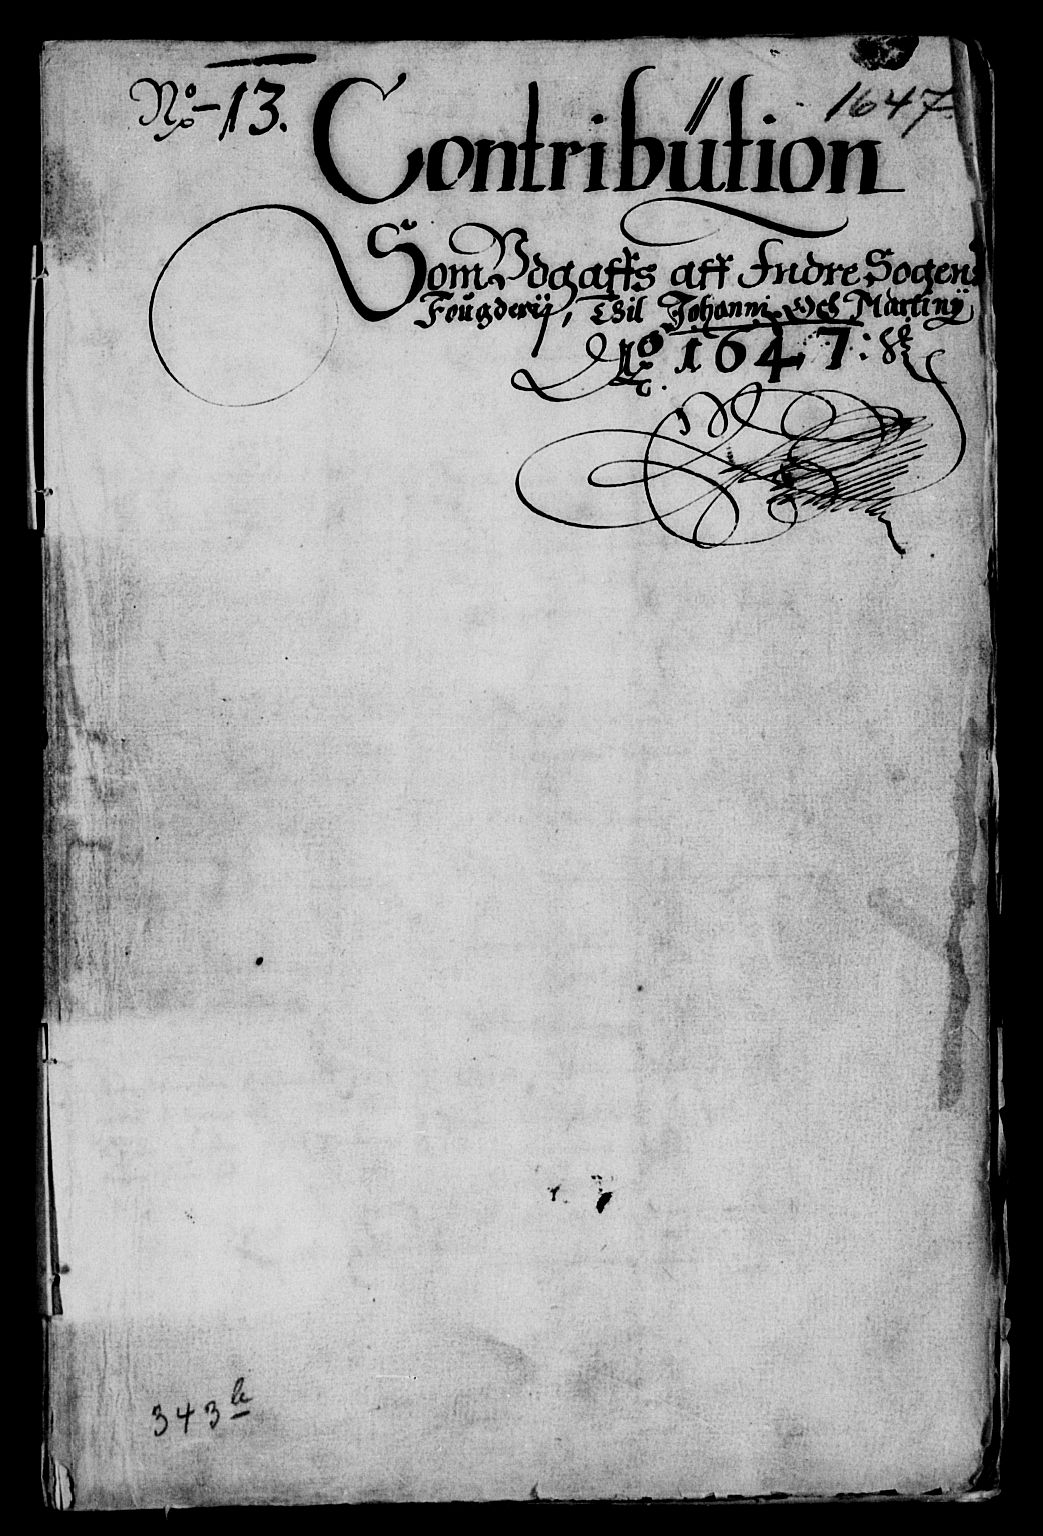 No 13.
1647.
Contribution
Som Vdgaffs aff Indre Sogens
Fougderij, Till Johanni och Martinij
Ao 1647:
343 b